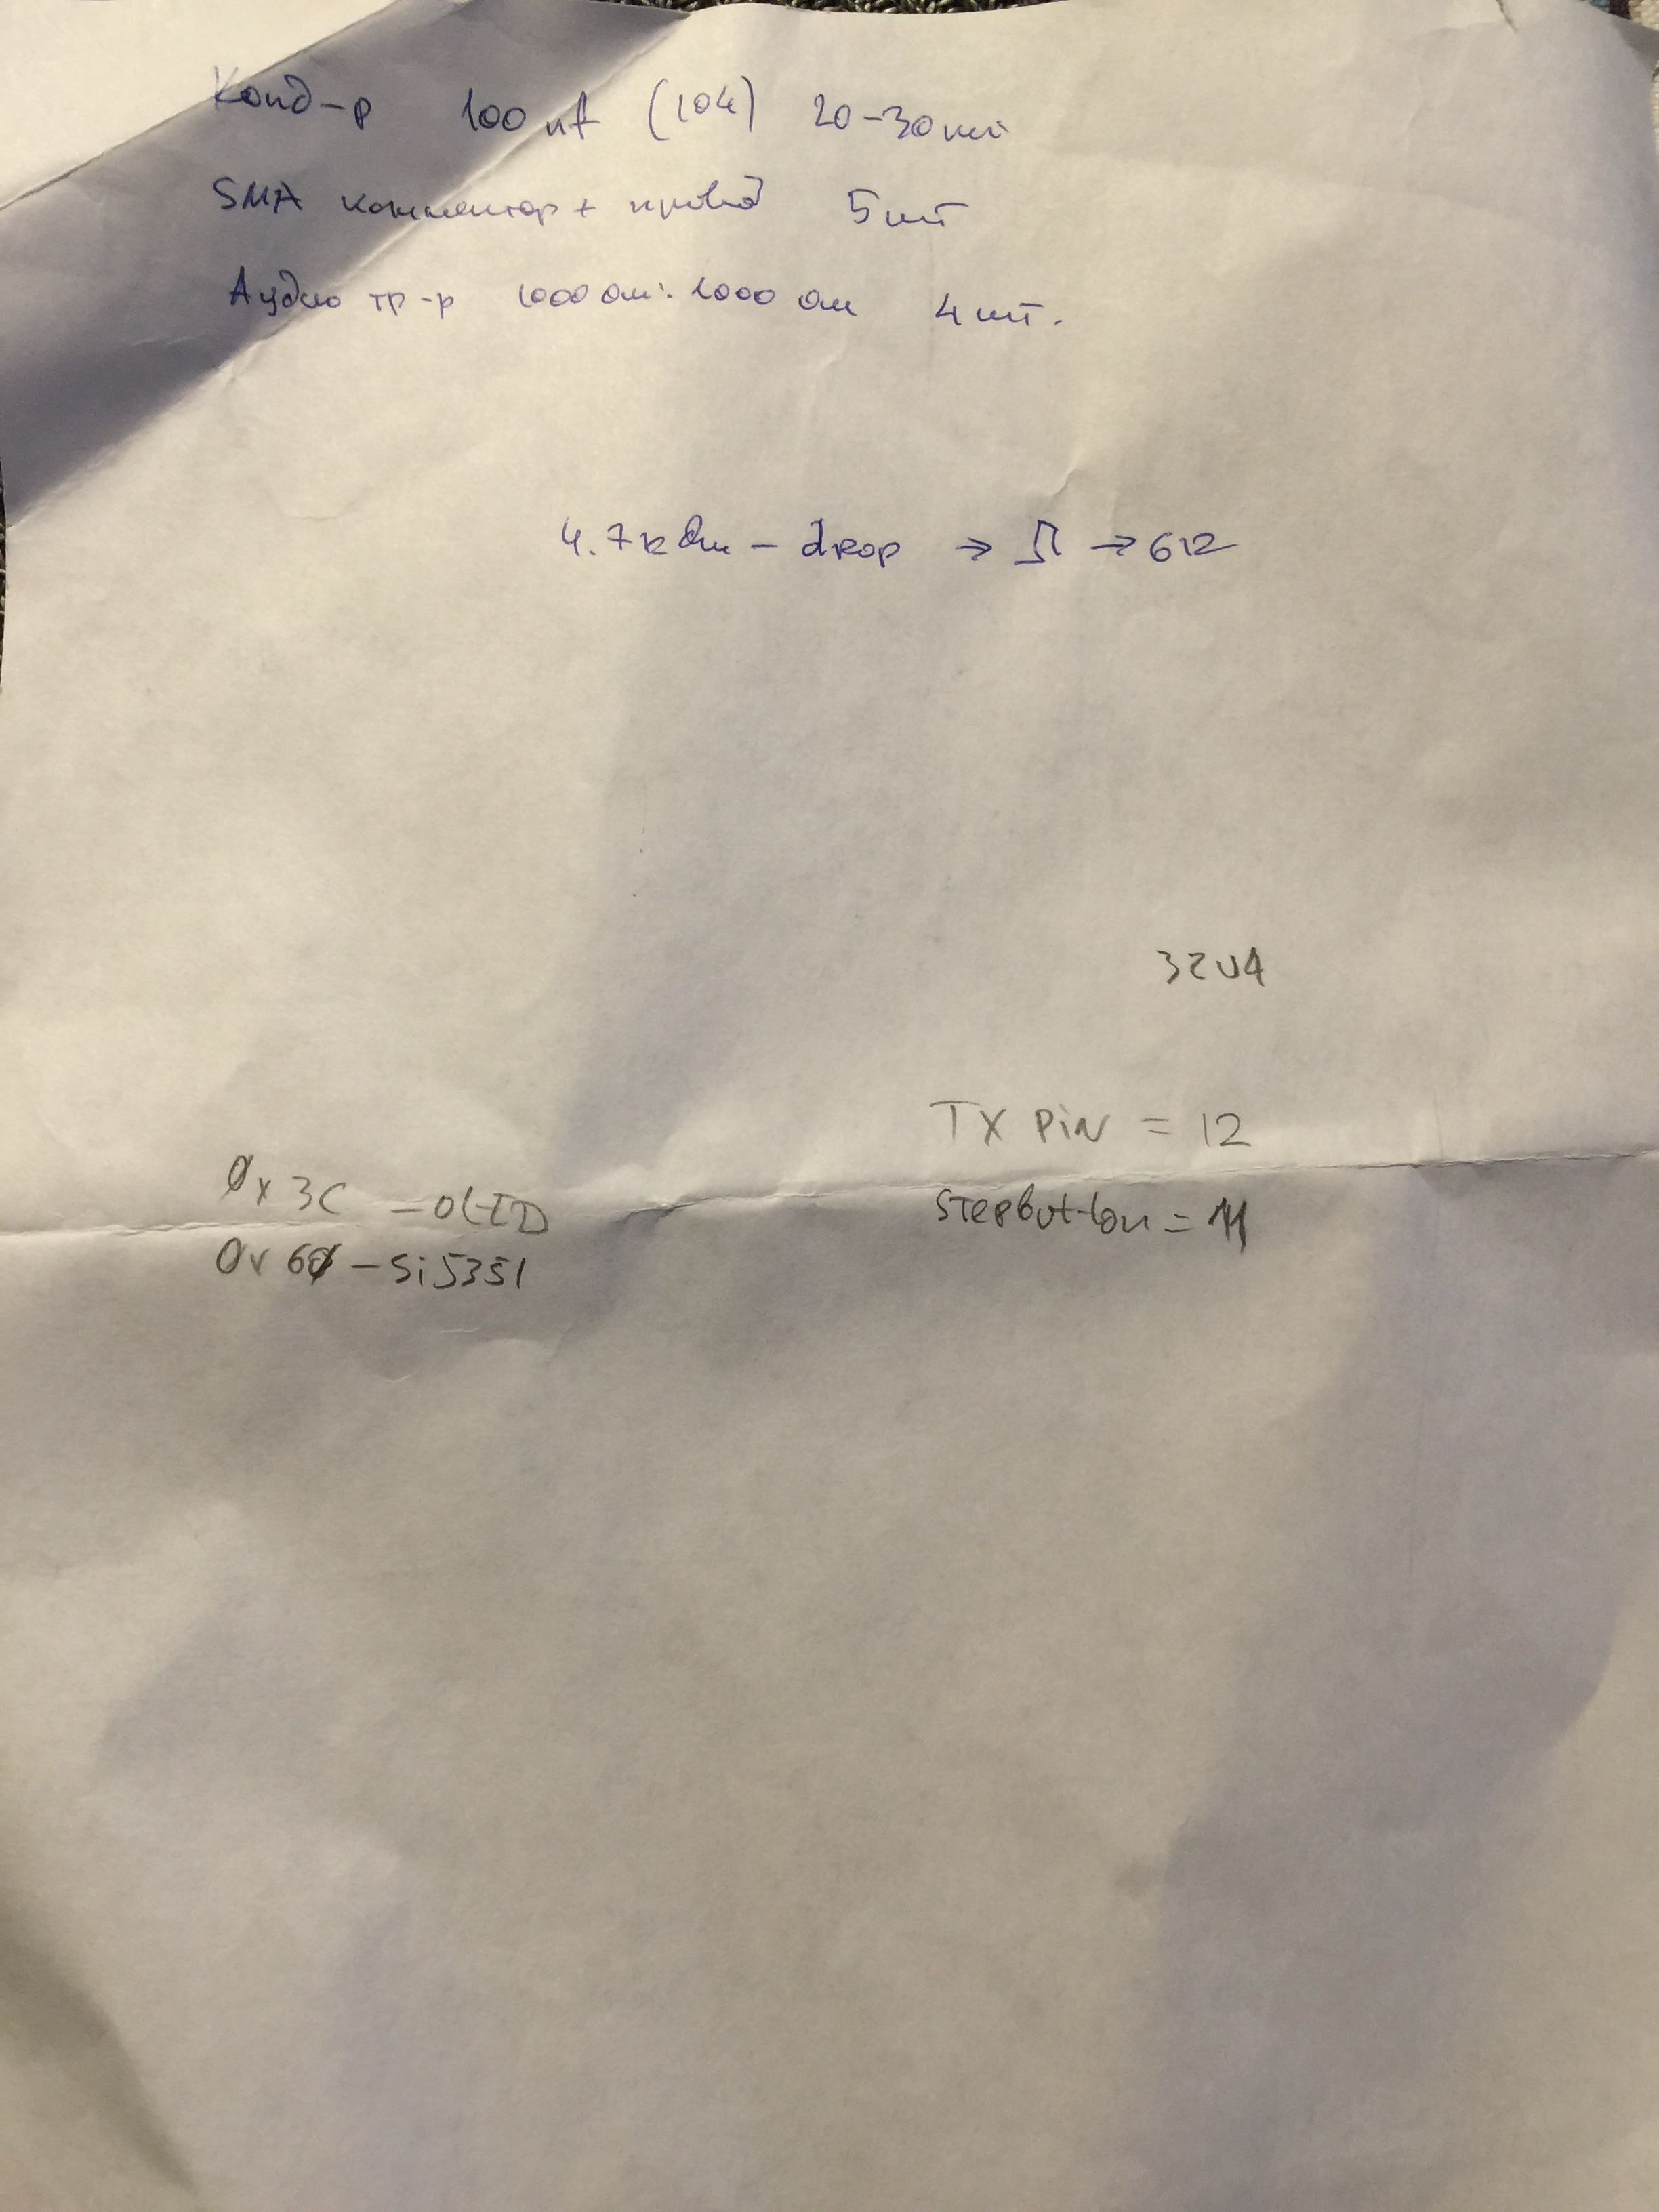 Конд-р 100 nf (104) 20-30 шт
SMA коннектор + провод 5 шт
Аудио тр-р 1000 Ом : 1000 Ом 4 шт.
4.7к Ом - drop → → 6к
32U4
TX PiN = 12
0x3C - OLED
Stepbutton = 11
0x60 - Si5351